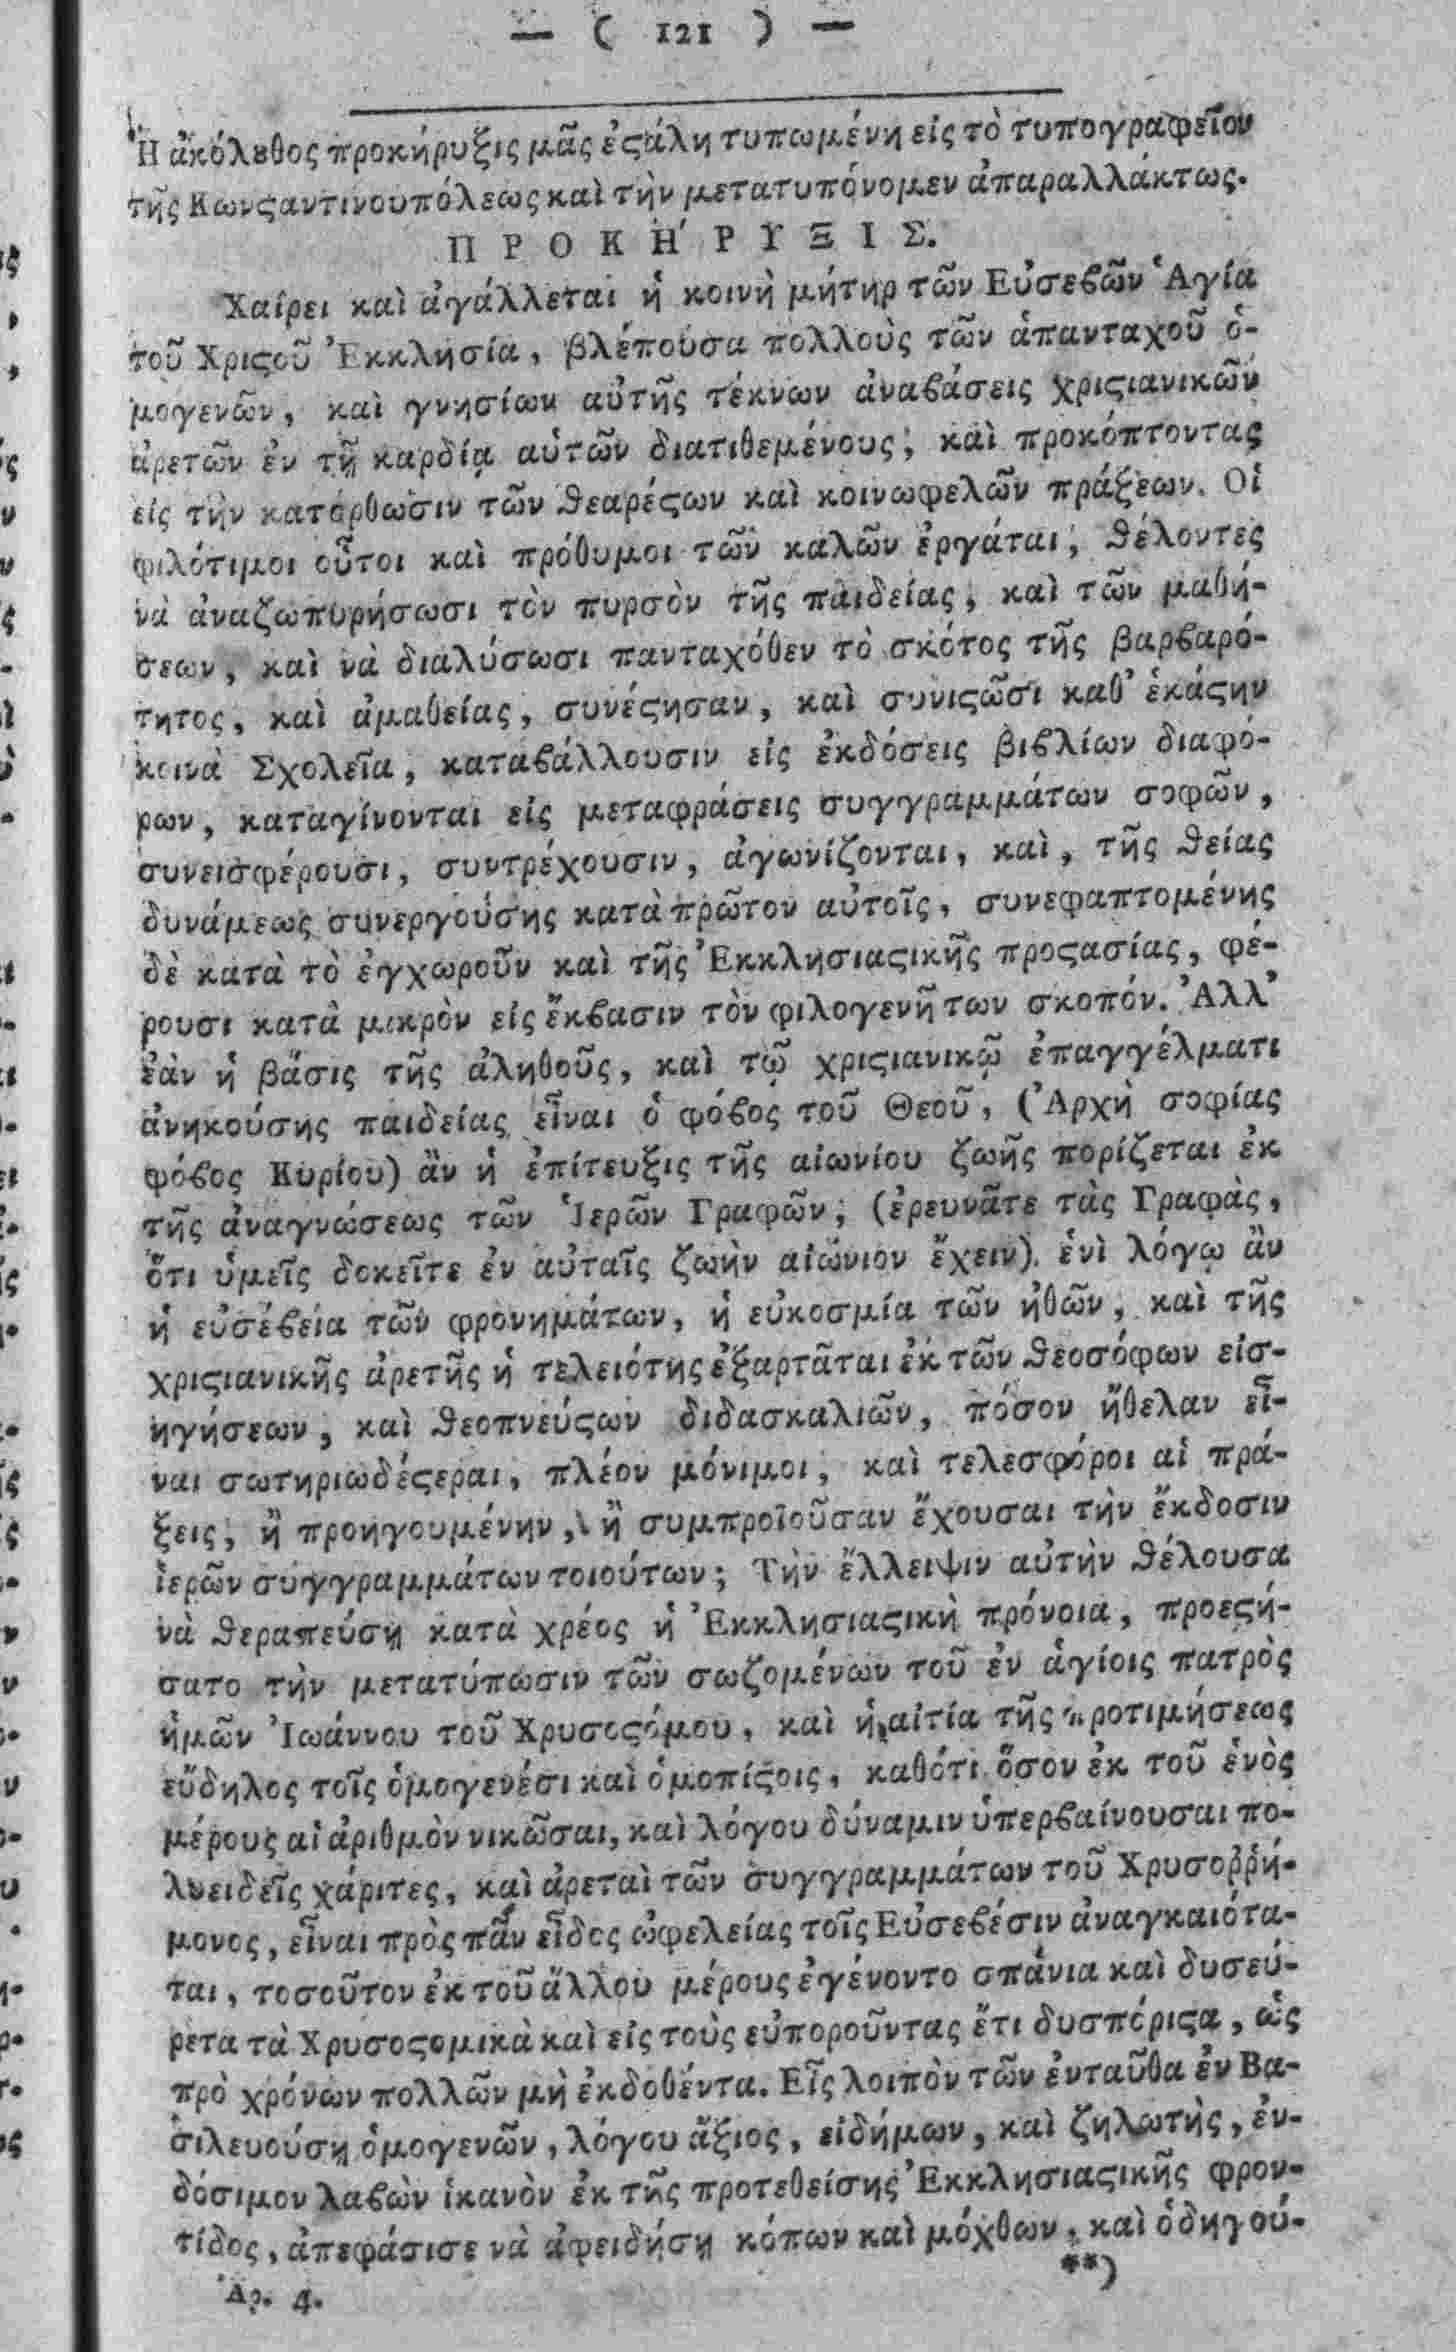 — ( 121 ) —
Ἡ ἀκόλȣθος προκήρυξις μᾶς ἐϛάλη τυπωμένη εἰς τὸ τυπογραφεῖον
τῆς Κωνϛαντινουπόλεως καὶ τὴν μετατυπόνομεν ἀπαραλλάκτως.
Π Ρ Ο Κ Ή Ρ Υ Ξ Ι Σ.
Χαίρει καὶ ἀγάλλεται ἡ κοινὴ μήτηρ τῶν Εὐσεϐῶν Ἁγία
τοῦ Χριϛοῦ Ἐκκλησία, βλέπουσα πολλοὺς τῶν ἁπανταχοῦ ὁ-
μογενῶν, καὶ γνησίων αὐτῆς τέκνων ἀναϐάσεις χριϛιανικῶν
ἀρετῶν ἐν τῇ καρδίᾳ αὑτῶν διατιθεμένους, καὶ προκόπτοντας
εἰς τὴν κατόρθωσιν τῶν ϑεαρέϛων καὶ κοινωφελῶν πράξεων. Οἱ
φιλότιμοι οὗτοι καὶ πρόθυμοι τῶν καλῶν ἐργάται, ϑέλοντες
νὰ ἀναζωπυρήσωσι τὸν πυρσὸν τῆς παιδείας, καὶ τῶν μαθή-
σεων, καὶ νὰ διαλύσωσι πανταχόθεν τὸ σκότος τῆς βαρϐαρό-
τητος, καὶ ἀμαθείας, συνέϛησαν, καὶ συνιϛῶσι καθ' ἑκάϛην
κοινὰ Σχολεῖα, καταϐάλλουσιν εἰς ἐκδόσεις βιϐλίων διαφό-
ρων, καταγίνονται εἰς μεταφράσεις συγγραμμάτων σοφῶν,
συνεισφέρουσι, συντρέχουσιν, ἀγωνίζονται, καὶ, τῆς ϑείας
δυνάμεως συνεργούσης κατὰ πρῶτον αὐτοῖς, συνεφαπτομένης
δὲ κατὰ τὸ ἐγχωροῦν καὶ τῆς Ἐκκλησιαϛικῆς προϛασίας, φέ-
ρουσι κατὰ μικρὸν εἰς ἔκϐασιν τὸν φιλογενῆ των σκοπόν. Ἀλλ'
ἐὰν ἡ βάσις τῆς ἀληθοῦς, καὶ τῷ χριϛιανικῷ ἐπαγγέλματι
ἀνηκούσης παιδείας εἶναι ὁ φόϐος τοῦ Θεοῦ, (Ἀρχὴ σοφίας
φόϐος Κυρίου) ἂν ἡ ἐπίτευξις τῆς αἰωνίου ζωῆς πορίζεται ἐκ
τῆς ἀναγνώσεως τῶν Ἱερῶν Γραφῶν; (ἐρευνᾶτε τὰς Γραφὰς,
ὅτι ὑμεῖς δοκεῖτε ἐν αὐταῖς ζωὴν αἰώνιον ἔχειν). ἑνὶ λόγῳ ἂν
ἡ εὐσέϐεια τῶν φρονημάτων, ἡ εὐκοσμία τῶν ἠθῶν, καὶ τῆς
χριϛιανικῆς ἀρετῆς ἡ τελειότης ἐξαρτᾶται ἐκ τῶν ϑεοσόφων εἰσ-
ηγήσεων, καὶ ϑεοπνεύϛων διδασκαλιῶν, πόσον ἤθελαν εἶ-
ναι σωτηριωδέϛεραι, πλέον μόνιμοι, καὶ τελεσφόροι αἱ πρά-
ξεις, ἢ προηγουμένην, ἢ συμπροϊοῦσαν ἔχουσαι τὴν ἔκδοσιν
ἱερῶν συγγραμμάτων τοιούτων; Τὴν ἔλλειψιν αὐτὴν ϑέλουσα
νὰ ϑεραπεύσῃ κατὰ χρέος ἡ Ἐκκλησιαϛικὴ πρόνοια, προεϛή-
σατο τὴν μετατύπωσιν τῶν σωζομένων τοῦ ἐν ἁγίοις πατρὸς
ἡμῶν Ἰωάννου τοῦ Χρυσοϛόμου, καὶ ἡ αἰτία τῆς προτιμήσεως
εὔδηλος τοῖς ὁμογενέσι καὶ ὁμοπίϛοις, καθότι ὅσον ἐκ τοῦ ἑνὸς
μέρους αἱ ἀριθμὸν νικῶσαι, καὶ λόγου δύναμιν ὑπερϐαίνουσαι πο-
λυειδεῖς χάριτες, καὶ ἀρεταὶ τῶν συγγραμμάτων τοῦ Χρυσοῤῥή-
μονος, εἶναι πρὸς πᾶν εἶδος ὠφελείας τοῖς Εὐσεϐέσιν ἀναγκαιότα-
ται, τοσοῦτον ἐκ τοῦ ἄλλου μέρους ἐγένοντο σπάνια καὶ δυσεύ-
ρετα τὰ Χρυσοϛομικὰ καὶ εἰς τοὺς εὐποροῦντας ἔτι δυσπόριϛα, ὡς
πρὸ χρόνων πολλῶν μὴ ἐκδοθέντα. Εἷς λοιπὸν τῶν ἐνταῦθα ἐν Βα-
σιλευούσῃ ὁμογενῶν, λόγου ἄξιος, εἰδήμων, καὶ ζηλωτὴς, ἐν-
δόσιμον λαϐὼν ἱκανὸν ἐκ τῆς προτεθείσης Ἐκκλησιαϛικῆς φρον-
τίδος, ἀπεφάσισε νὰ ἀφειδήσῃ κόπων καὶ μόχθων, καὶ ὁδηγού-
**)
Ἀρ. 4.